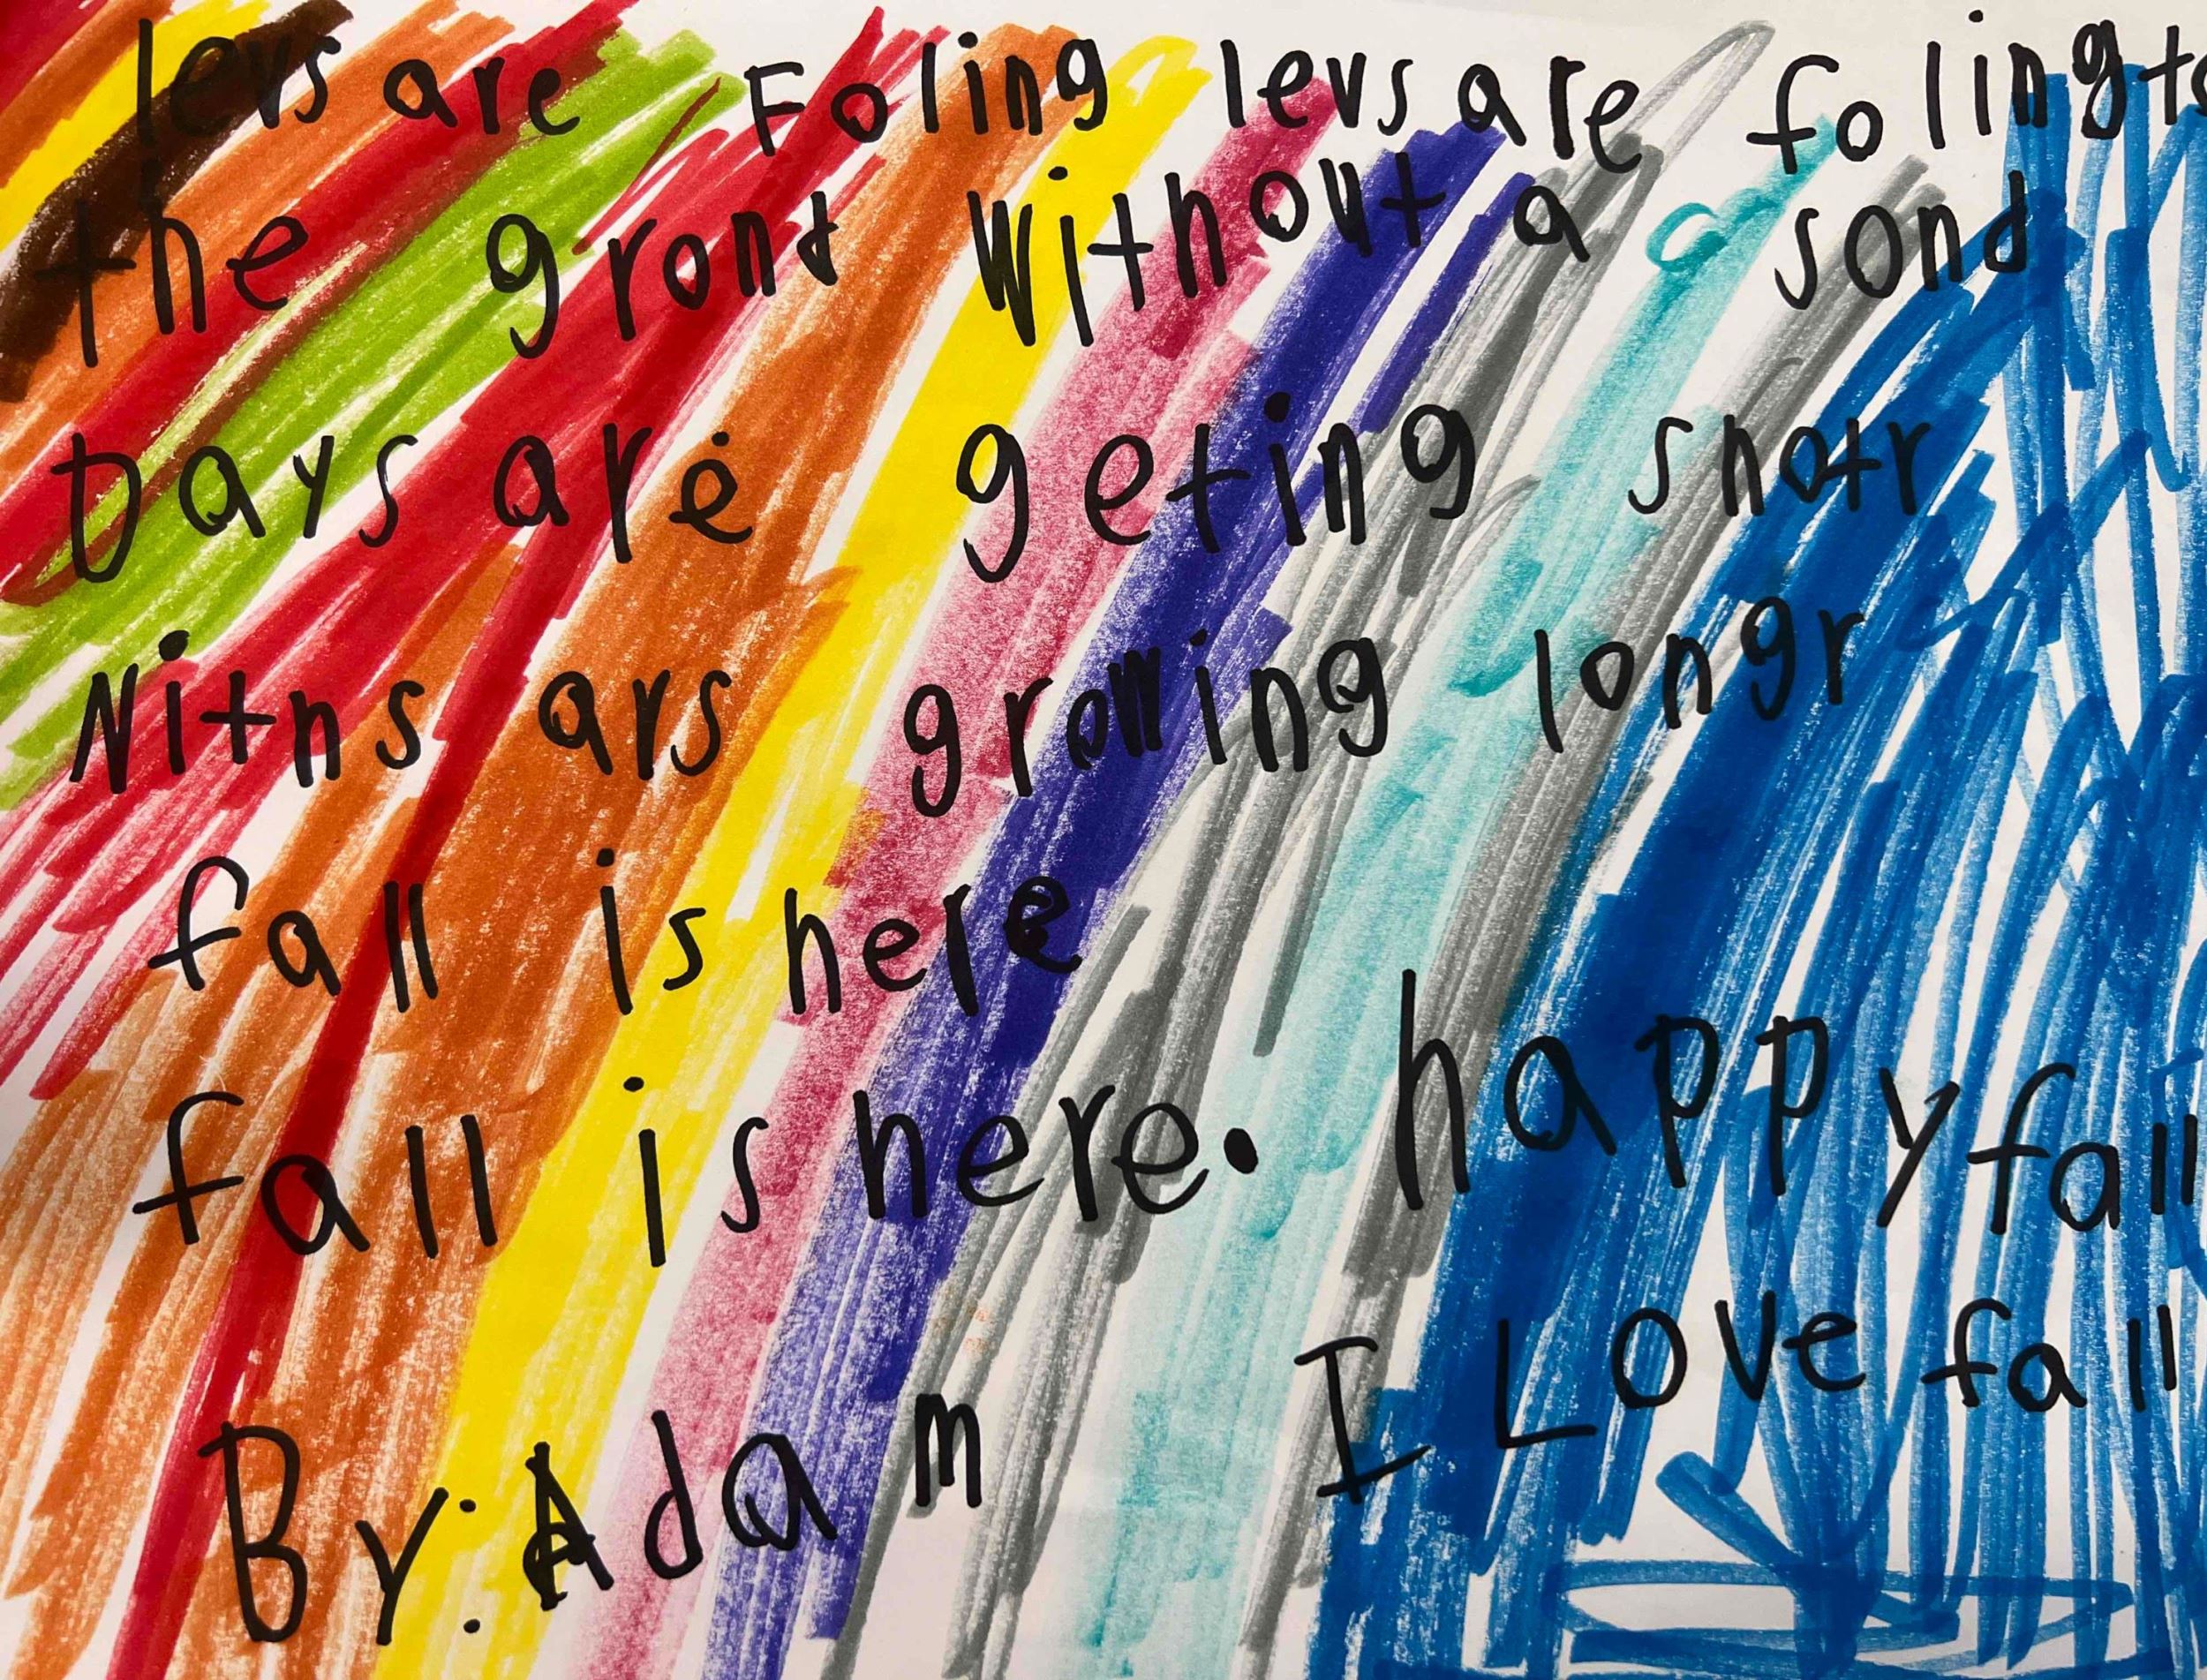 levs are Foling levs are foling to
the grond without a sond
Days are geting shotr
Nithns ars growing longr
fall is here
fall is here. happy fall
I Love fall
By: Adam